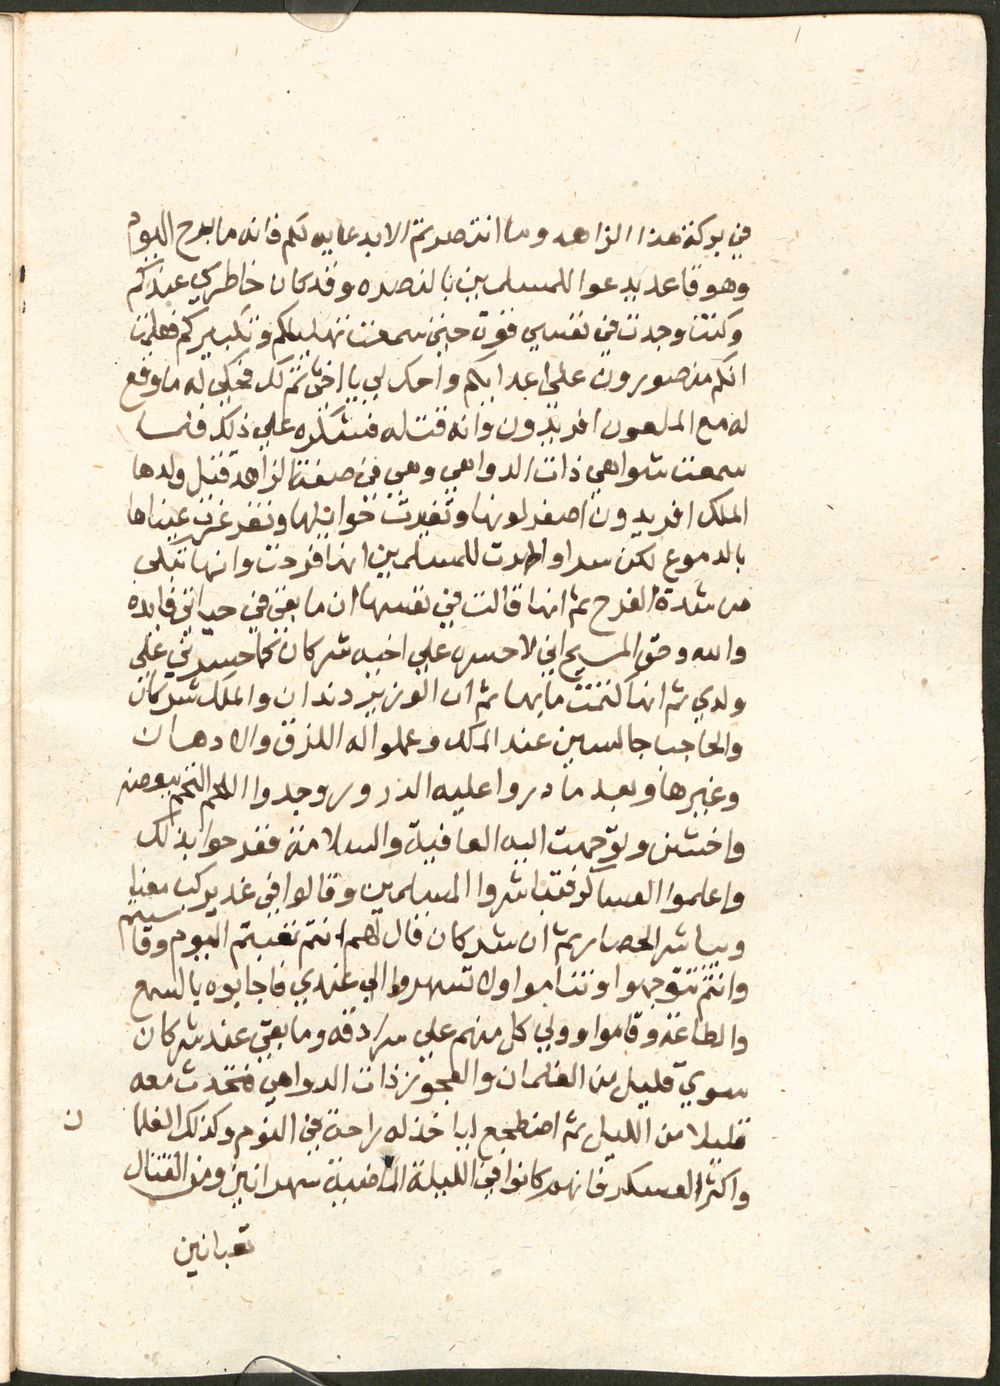 في بركة هذا الزاهد وما انتصرتم الا بدعايه لكم فانه ما برح اليوم
وهو قاعد يدعوا للمسلمين بالنصره وقد كان خاطري عندكم
وكنت وجدت في نفسي قوة حين سمعت تهليلكم وتكبيركم فعلمت
انكم منصورون علي اعدايكم واحكي لي يا اخي ثم لك فحكي له ما وقع
له مع الملعون افريدون وانه قتله فشكره علي ذلك فلما
سمعت شواهي ذات الدواهي وهي في صفة الزاهد قتل ولدها
الملك افريدون اصفر لونها وتغيرت خوانيها وتغرغرت عيناها
بالدموع لكن سرا واظهرت للمسلمين انها فرحت وانها تبكي
من شدة الفرح ثم انها قالت في نفسها ان ما بقي في حياتي فايده
والله وحق المسيح اني لاحسره علي اخيه شركان كما حسرني علي
ولدي ثم انها كتمت ما بها ثم ان الوزير دندان والملك شركان
والحاجب جالسين عند الملك وعملوا له اللزق والادهان
وغيرها وبعد ما دروا عليه الدرور وجدوا اللحم التحم ببعضه
واختشن وتوجهت اليه العافية والسلامة ففرحوا بذالك
واعلموا العساكر فتباشروا المسلمين وقالوا في غد يركب معنا
ويباشر الحصار ثم ان شركان قال لهم انتم تعبتم اليوم وقاسيتم
وانتم تتوجهوا وتناموا ولا تسهروا الي عندي فاجابوه بالسمع
والطاعة وقاموا وولي كل منهم علي سرادقه وما بقي عند شركان
سوي قليل من الغلمان والعجوز ذات الدواهي فتحدث معه
قليلا من الليل ثم اضطجع ليا خذ له راحة في النوم وكذلك الغلما
ن
واكثر العسكر فانهم كانوا في الليلة الماضية سهرانين ومن القتال
تعبانين